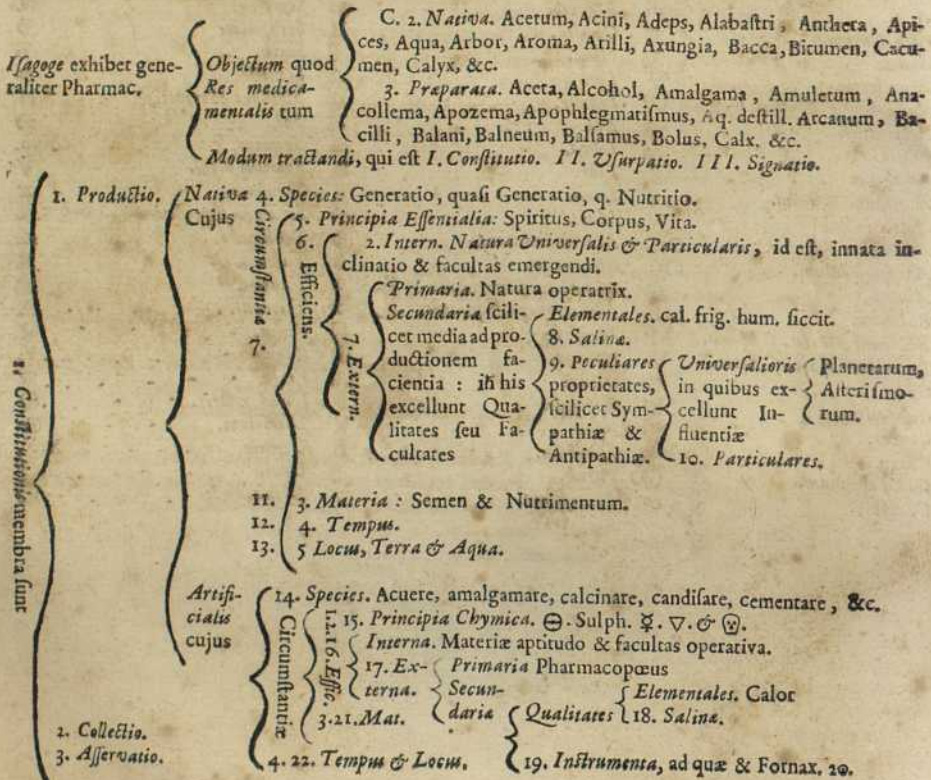 C. 2. Nativa. Acetum, Acini, Adeps, Alabaſtri, Anthera, Api-
ces, Aqua, Arbor, Aroma, Arilli, Axungia, Bacca, Bitumen, Cacu-
men, Calyx, &c.
Iſagoge exhibet gene-
raliter Pharmac.
Objectum quod
Res medica-
mentalis tum
3. Præparata. Aceta, Alcohol, Amalgama, Amuletum, Ana-
collema, Apozema, Apophlegmatiſmus, Aq. deſtill. Arcanum, Ba-
cilli, Balani, Balneum, Balſamus, Bolus, Calx. &c.
Modum tractandi, qui eſt I. Conſtitutio. II. Uſurpatio. III. Signatio.
1. Conſtitutionis membra ſunt
1. Productio.
Nativa 4. Species: Generatio, quaſi Generatio, q. Nutritio.
Cujus
Circumſtantiæ
7.
5. Principia Eſſentialia: Spiritus, Corpus, Vita.
6.
Efficiens.
2. Intern. Natura Univerſalis & Particularis, id eſt, innata in-
clinatio & facultas emergendi.
7. Extern.
Primaria. Natura operatrix.
Secundaria ſcili-
cet media ad pro-
ductionem fa-
cientia: in his
excellunt Qua-
litates ſeu Fa-
cultates
Elementales. cal. frig. hum. ſiccit.
8. Salinæ.
9. Peculiares
proprietates,
ſcilicet Sym-
pathiæ &
Antipathiæ.
Univerſalioris
in quibus ex-
cellunt In-
fluentiæ
Planetarum,
Aſteriſmo-
rum.
10. Particulares.
11. 3. Materia: Semen & Nutrimentum.
12. 4. Tempus.
13. 5 Locus, Terra & Aqua.
Artifi-
cialis
cujus
14. Species. Acuere, amalgamare, calcinare, candiſare, cementare, &c.
Circumſtantiæ
1.2. 15. Principia Chymica. 🜔. Sulph. ☿. ▽. & 💀.
16. Effic.
Interna. Materiæ aptitudo & facultas operativa.
17. Ex-
terna.
Primaria Pharmacopœus
Secun-
daria
Qualitates
Elementales. Calor
18. Salinæ.
19. Inſtrumenta, ad quæ & Fornax. 20.
3. 21. Mat.
4. 22. Tempus & Locus.
2. Collectio.
3. Aſſervatio.